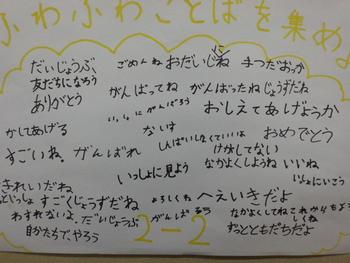 ふわふわことばを集めよ
だいじょうぶ ごめんね おだいじに てつだおっか
友だちになろう
ありがとう がんばってね がんばったね じょうずだね
いっしょにがんばろう おしえてあげようか
かしてあげる ないす しんぱいしなくていいよ おめでとう
すごいね がんばれ けがしてない
いっしょに見よう なかよくしようね いいね
きれいだね いっしょにいこう
すごくじょうずだね よろしくね へえいきだよ
わすれないよ だいじょうぶ がんばろう なかよくしてね これからもよろしくね
自分たちで、やろう 2-2 ずっとともだちだよ